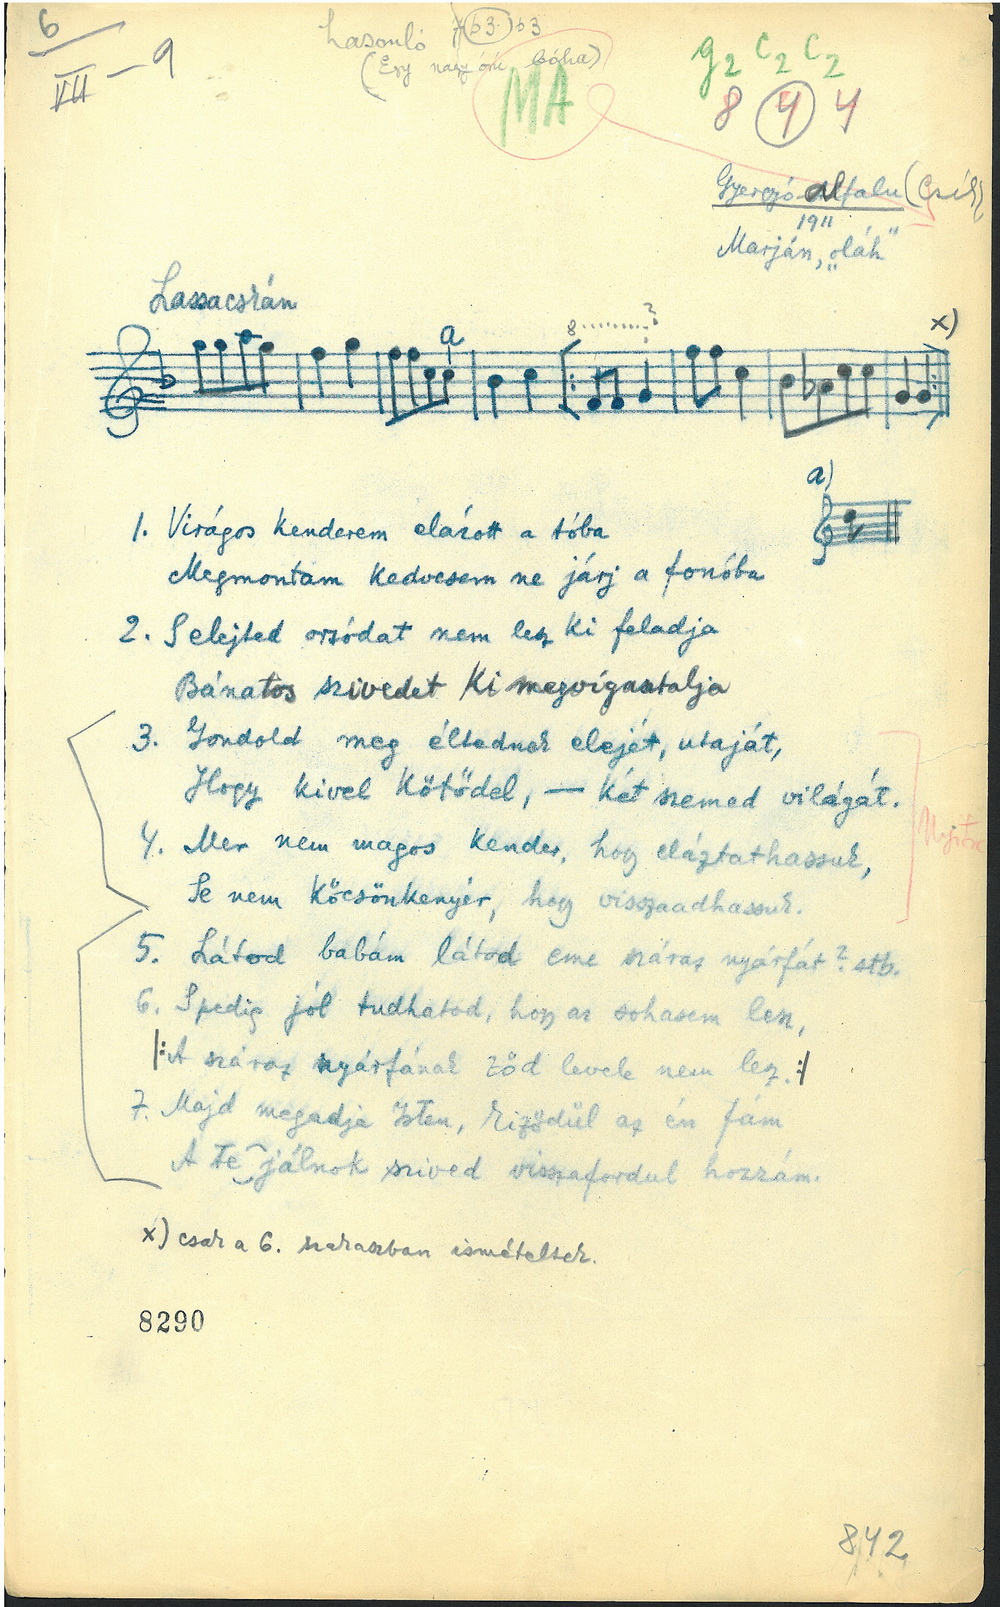 6
VII - 9
hasonló 7 (b3) b3
(Egy nagy óri bóha)
MA
g2 c2 c2
8 4 4
Gyergyó alfalu (Csík)
1911
Marján, „oláh"
Lassacskán
a
8 ........ ?
x)
a)
1. Virágos kenderem elázott a tóba
Megmontam kedvesem ne járj a fonóba
2. S elejted orsódat nem lesz ki feladja
Bánatos szivedet ki megvigasztalja
3. Gondold meg éltednek elejét, utaját,
Hogy kivel kötödel, — két szemed világát.
4. Mer nem magos kender, hogy eláztathassuk,
Se nem kőcsönkenyér, hogy visszaadhassuk.
5. Látod babám látod eme száraz nyárfát? stb.
6. S pedig jól tudhatod, hogy az sohasem lesz,
|: A száraz nyárfának ződ levele nem lesz. :|
7. Majd megadja Isten, kizödül az én fám
A te jálnok szived visszafordul hozzám.
x) csak a 6. szakaszban ismételték.
8290
842